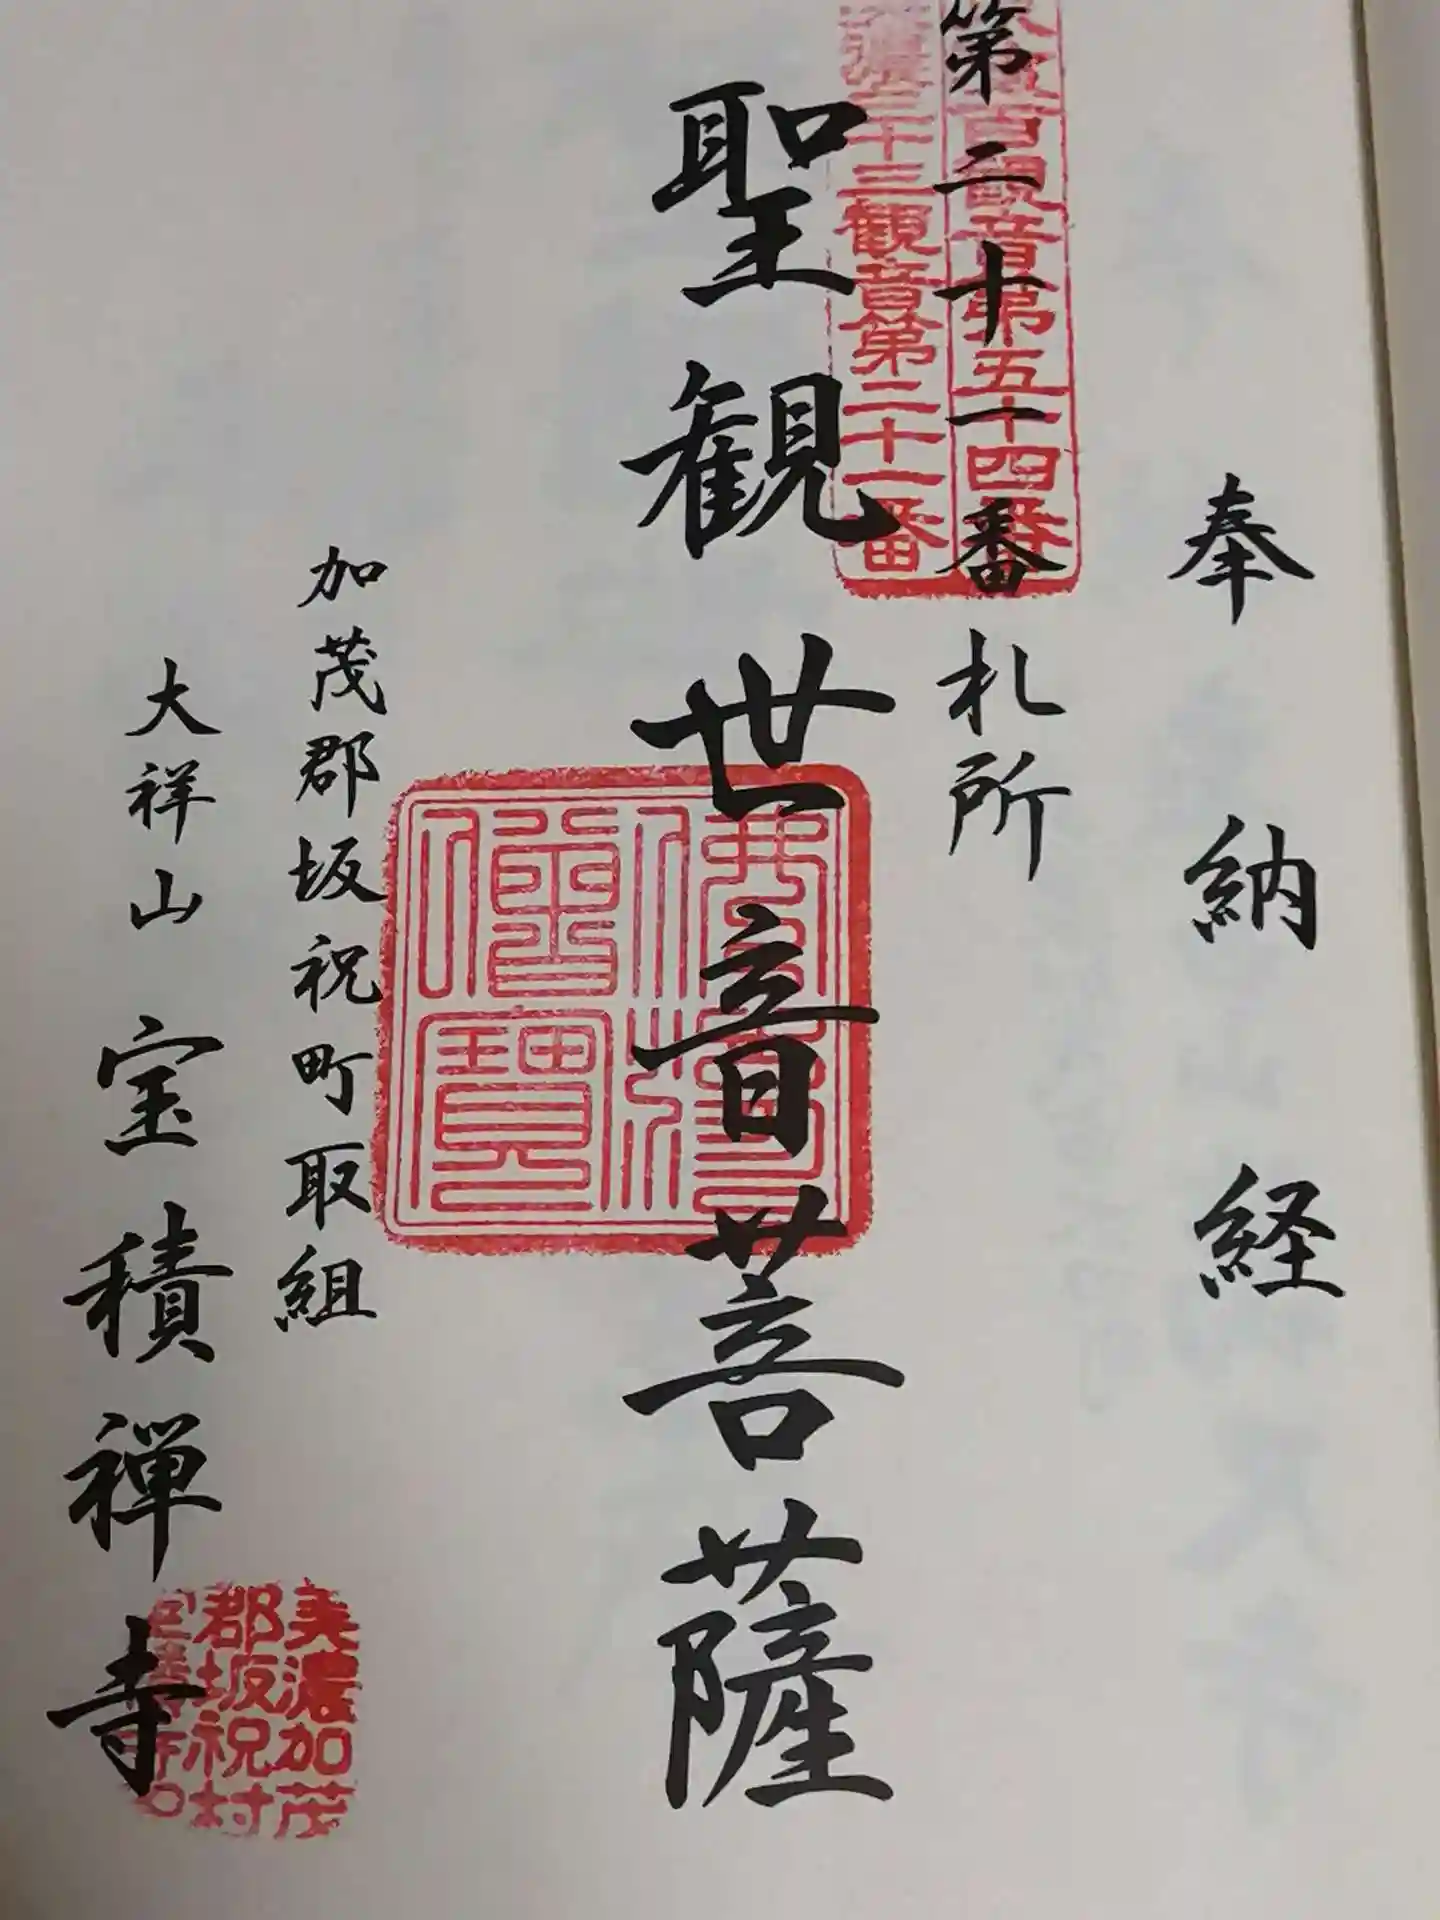 奉納経
第二十一番札所
百観音第五十四番
濃三十三観音第二十一番
聖観世音菩薩
佛法僧寶
加茂郡坂祝町取組
大祥山宝積禅寺
美濃加茂
郡坂祝村